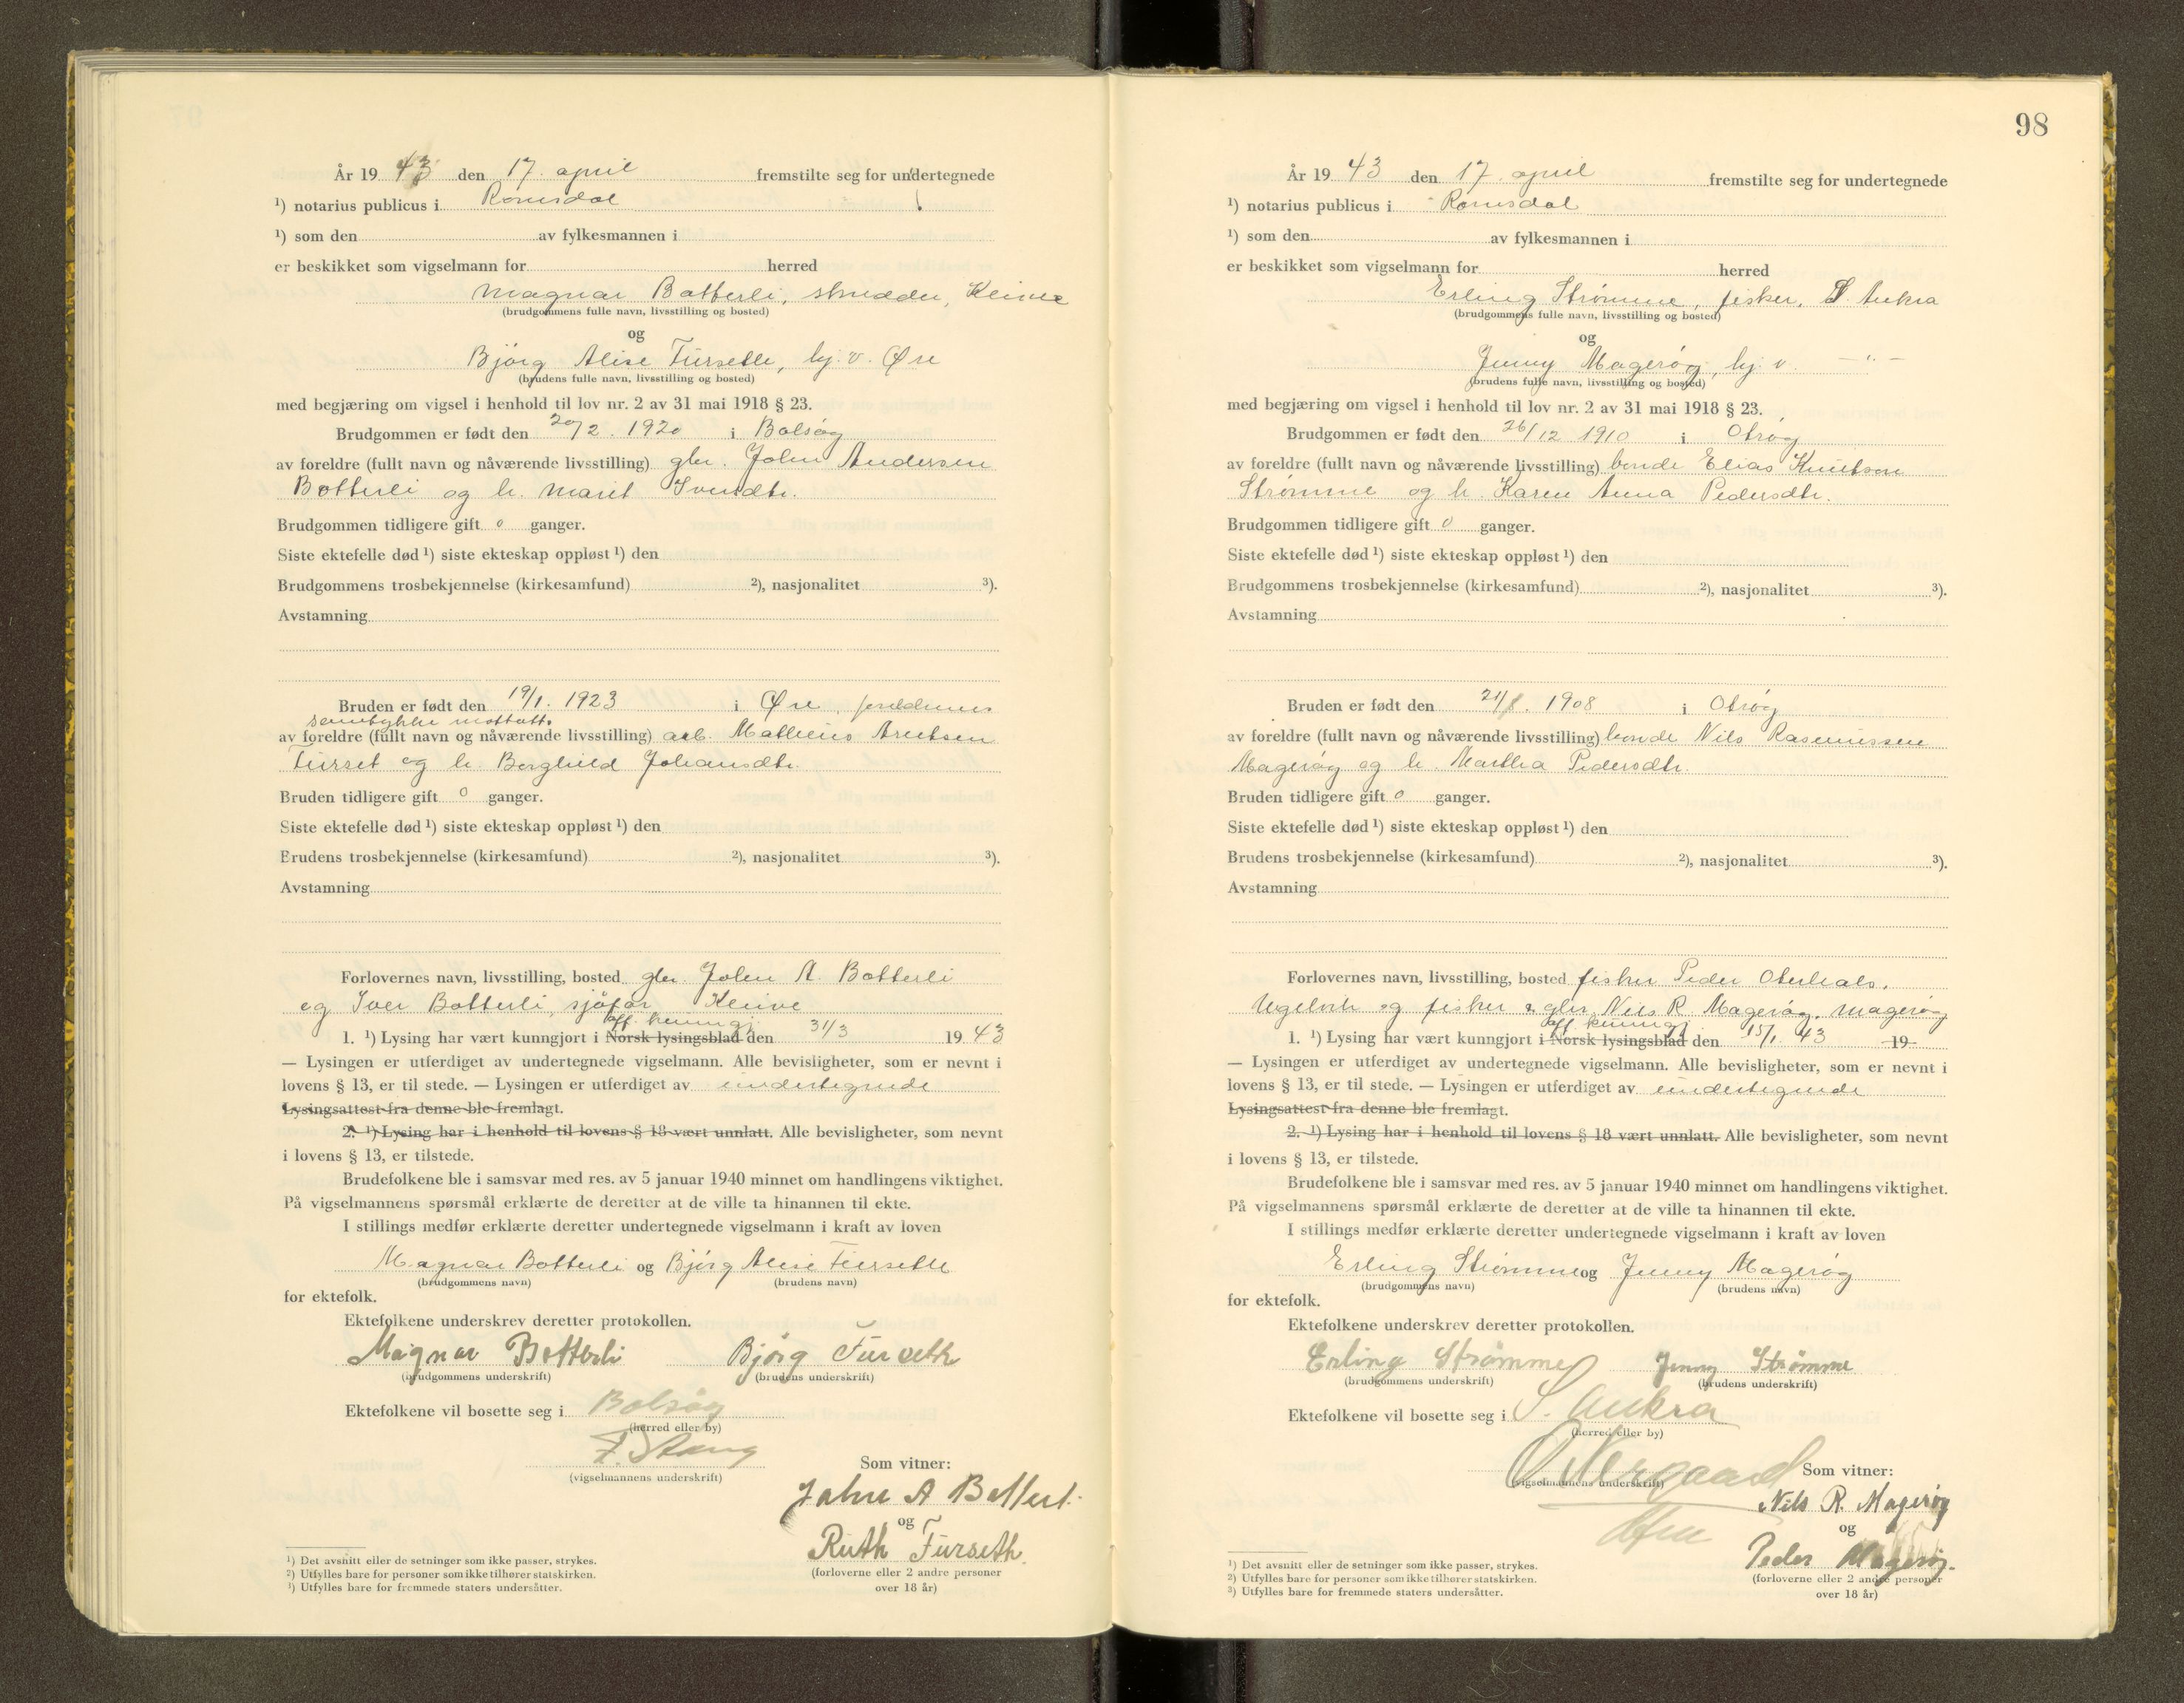 År 19 43 den 17. april fremstilte seg for undertegnede
¹) notarius publicus i Romsdal
¹) som den av fylkesmannen i
er beskikket som vigselmann for herred
Magnar Botterli, skredder, Kleive
(brudgommens fulle navn, livsstilling og bosted)
og
Bjørg Alise Furseth, hj. v. Øre
(brudens fulle navn, livsstilling og bosted)
med begjæring om vigsel i henhold til lov nr. 2 av 31 mai 1918 § 23.
Brudgommen er født den 20/2. 1920 i Bolsøy
av foreldre (fullt navn og nåværende livsstilling) gbr. John Andersen
Botterli og h. Marit Iversdtr.
Brudgommen tidligere gift 0 ganger.
Siste ektefelle død ¹) siste ekteskap oppløst ¹) den
Brudgommens trosbekjennelse (kirkesamfund) ²), nasjonalitet ³).
Avstamning
Bruden er født den 19/1. 1923 i Øre, foreldrenes
samtykke mottatt.
av foreldre (fullt navn og nåværende livsstilling) arb. Matheus Arntsen
Furset og h. Borghild Johansdtr.
Bruden tidligere gift 0 ganger.
Siste ektefelle død ¹) siste ekteskap oppløst ¹) den
Brudens trosbekjennelse (kirkesamfund) ²), nasjonalitet ³).
Avstamning
Forlovernes navn, livsstilling, bosted gbr. John A. Botterli
og Iver Botterli, sjåfør Kleive
off. kunngj.
1. ¹) Lysing har vært kunngjort i Norsk lysingsblad den 31/3 19 43
— Lysingen er utferdiget av undertegnede vigselmann. Alle bevisligheter, som er nevnt i
lovens § 13, er til stede. — Lysingen er utferdiget av undertegnede
Lysingsattest fra denne ble fremlagt.
2. ¹) Lysing har i henhold til lovens § 18 vært unnlatt. Alle bevisligheter, som nevnt
i lovens § 13, er tilstede.
Brudefolkene ble i samsvar med res. av 5 januar 1940 minnet om handlingens viktighet.
På vigselmannens spørsmål erklærte de deretter at de ville ta hinannen til ekte.
I stillings medfør erklærte deretter undertegnede vigselmann i kraft av loven
Magnar Botterli og Bjørg Alise Furseth
(brudgommens navn) (brudens navn)
for ektefolk.
Ektefolkene underskrev deretter protokollen.
Magnar Botterli Bjørg Furseth
(brudgommens underskrift) (brudens underskrift)
Ektefolkene vil bosette seg i Bolsøy
(herred eller by)
F. Stang
(vigselmannens underskrift)
Som vitner:
John A Botterli
og
Ruth Furseth.
(forloverne eller 2 andre personer
over 18 år)
¹) Det avsnitt eller de setninger som ikke passer, strykes.
²) Utfylles bare for personer som ikke tilhører statskirken.
³) Utfylles bare for fremmede staters undersåtter.
98
År 19 43 den 17. april fremstilte seg for undertegnede
¹) notarius publicus i Romsdal
¹) som den av fylkesmannen i
er beskikket som vigselmann for herred
Erling Strømme, fisker, S. Aukra
(brudgommens fulle navn, livsstilling og bosted)
og
Jenny Magerøy, hj. v. —"—
(brudens fulle navn, livsstilling og bosted)
med begjæring om vigsel i henhold til lov nr. 2 av 31 mai 1918 § 23.
Brudgommen er født den 26/12 1910 i Otrøy
av foreldre (fullt navn og nåværende livsstilling) bonde Elias Knutsen
Strømme og h. Karen Anna Pedersdtr.
Brudgommen tidligere gift 0 ganger.
Siste ektefelle død ¹) siste ekteskap oppløst ¹) den
Brudgommens trosbekjennelse (kirkesamfund) ²), nasjonalitet ³).
Avstamning
Bruden er født den 21/8. 1908 i Otrøy
av foreldre (fullt navn og nåværende livsstilling) bonde Nils Rasmussen
Magerøy og h. Martha Pedersdtr.
Bruden tidligere gift 0 ganger.
Siste ektefelle død ¹) siste ekteskap oppløst ¹) den
Brudens trosbekjennelse (kirkesamfund) ²), nasjonalitet ³).
Avstamning
Forlovernes navn, livsstilling, bosted fisker Peder Oterhals,
Ugelvik og fisker & gbr. Nils R. Magerøy, Magerøy
off. kunngj.
1. ¹) Lysing har vært kunngjort i Norsk lysingsblad den 15/1. 43 19
— Lysingen er utferdiget av undertegnede vigselmann. Alle bevisligheter, som er nevnt i
lovens § 13, er til stede. — Lysingen er utferdiget av undertegnede
Lysingsattest fra denne ble fremlagt.
2. ¹) Lysing har i henhold til lovens § 18 vært unnlatt. Alle bevisligheter, som nevnt
i lovens § 13, er tilstede.
Brudefolkene ble i samsvar med res. av 5 januar 1940 minnet om handlingens viktighet.
På vigselmannens spørsmål erklærte de deretter at de ville ta hinannen til ekte.
I stillings medfør erklærte deretter undertegnede vigselmann i kraft av loven
Erling Strømme og Jenny Magerøy
(brudgommens navn) (brudens navn)
for ektefolk.
Ektefolkene underskrev deretter protokollen.
Erling Strømme Jenny Strømme
(brudgommens underskrift) (brudens underskrift)
Ektefolkene vil bosette seg i S. Aukra
(herred eller by)
O Nergaard
(vigselmannens underskrift)
Som vitner:
Nils R. Magerøy
og
Peder Magerøy.
(forloverne eller 2 andre personer
over 18 år)
¹) Det avsnitt eller de setninger som ikke passer, strykes.
²) Utfylles bare for personer som ikke tilhører statskirken.
³) Utfylles bare for fremmede staters undersåtter.